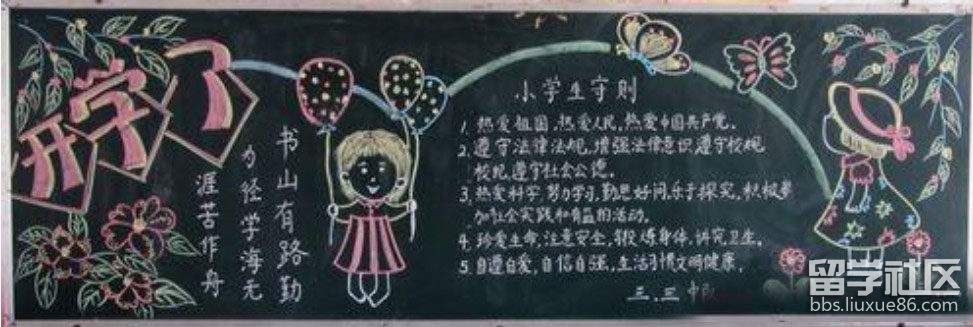 开学了
书山有路勤
为径学海无
涯苦作舟
小学生守则
1. 热爱祖国,热爱人民,热爱中国共产党。
2. 遵守法律法规,增强法律意识,遵守校规
校纪,遵守社会公德。
3. 热爱科学,努力学习,勤思好问,乐于探究,积极参
加社会实践和有益的活动。
4. 珍爱生命,注意安全,锻炼身体,讲究卫生。
5. 自遵自爱,自信自强,生活习惯文明健康。
三.三中队
留学社区
bbs.liuxue86.com